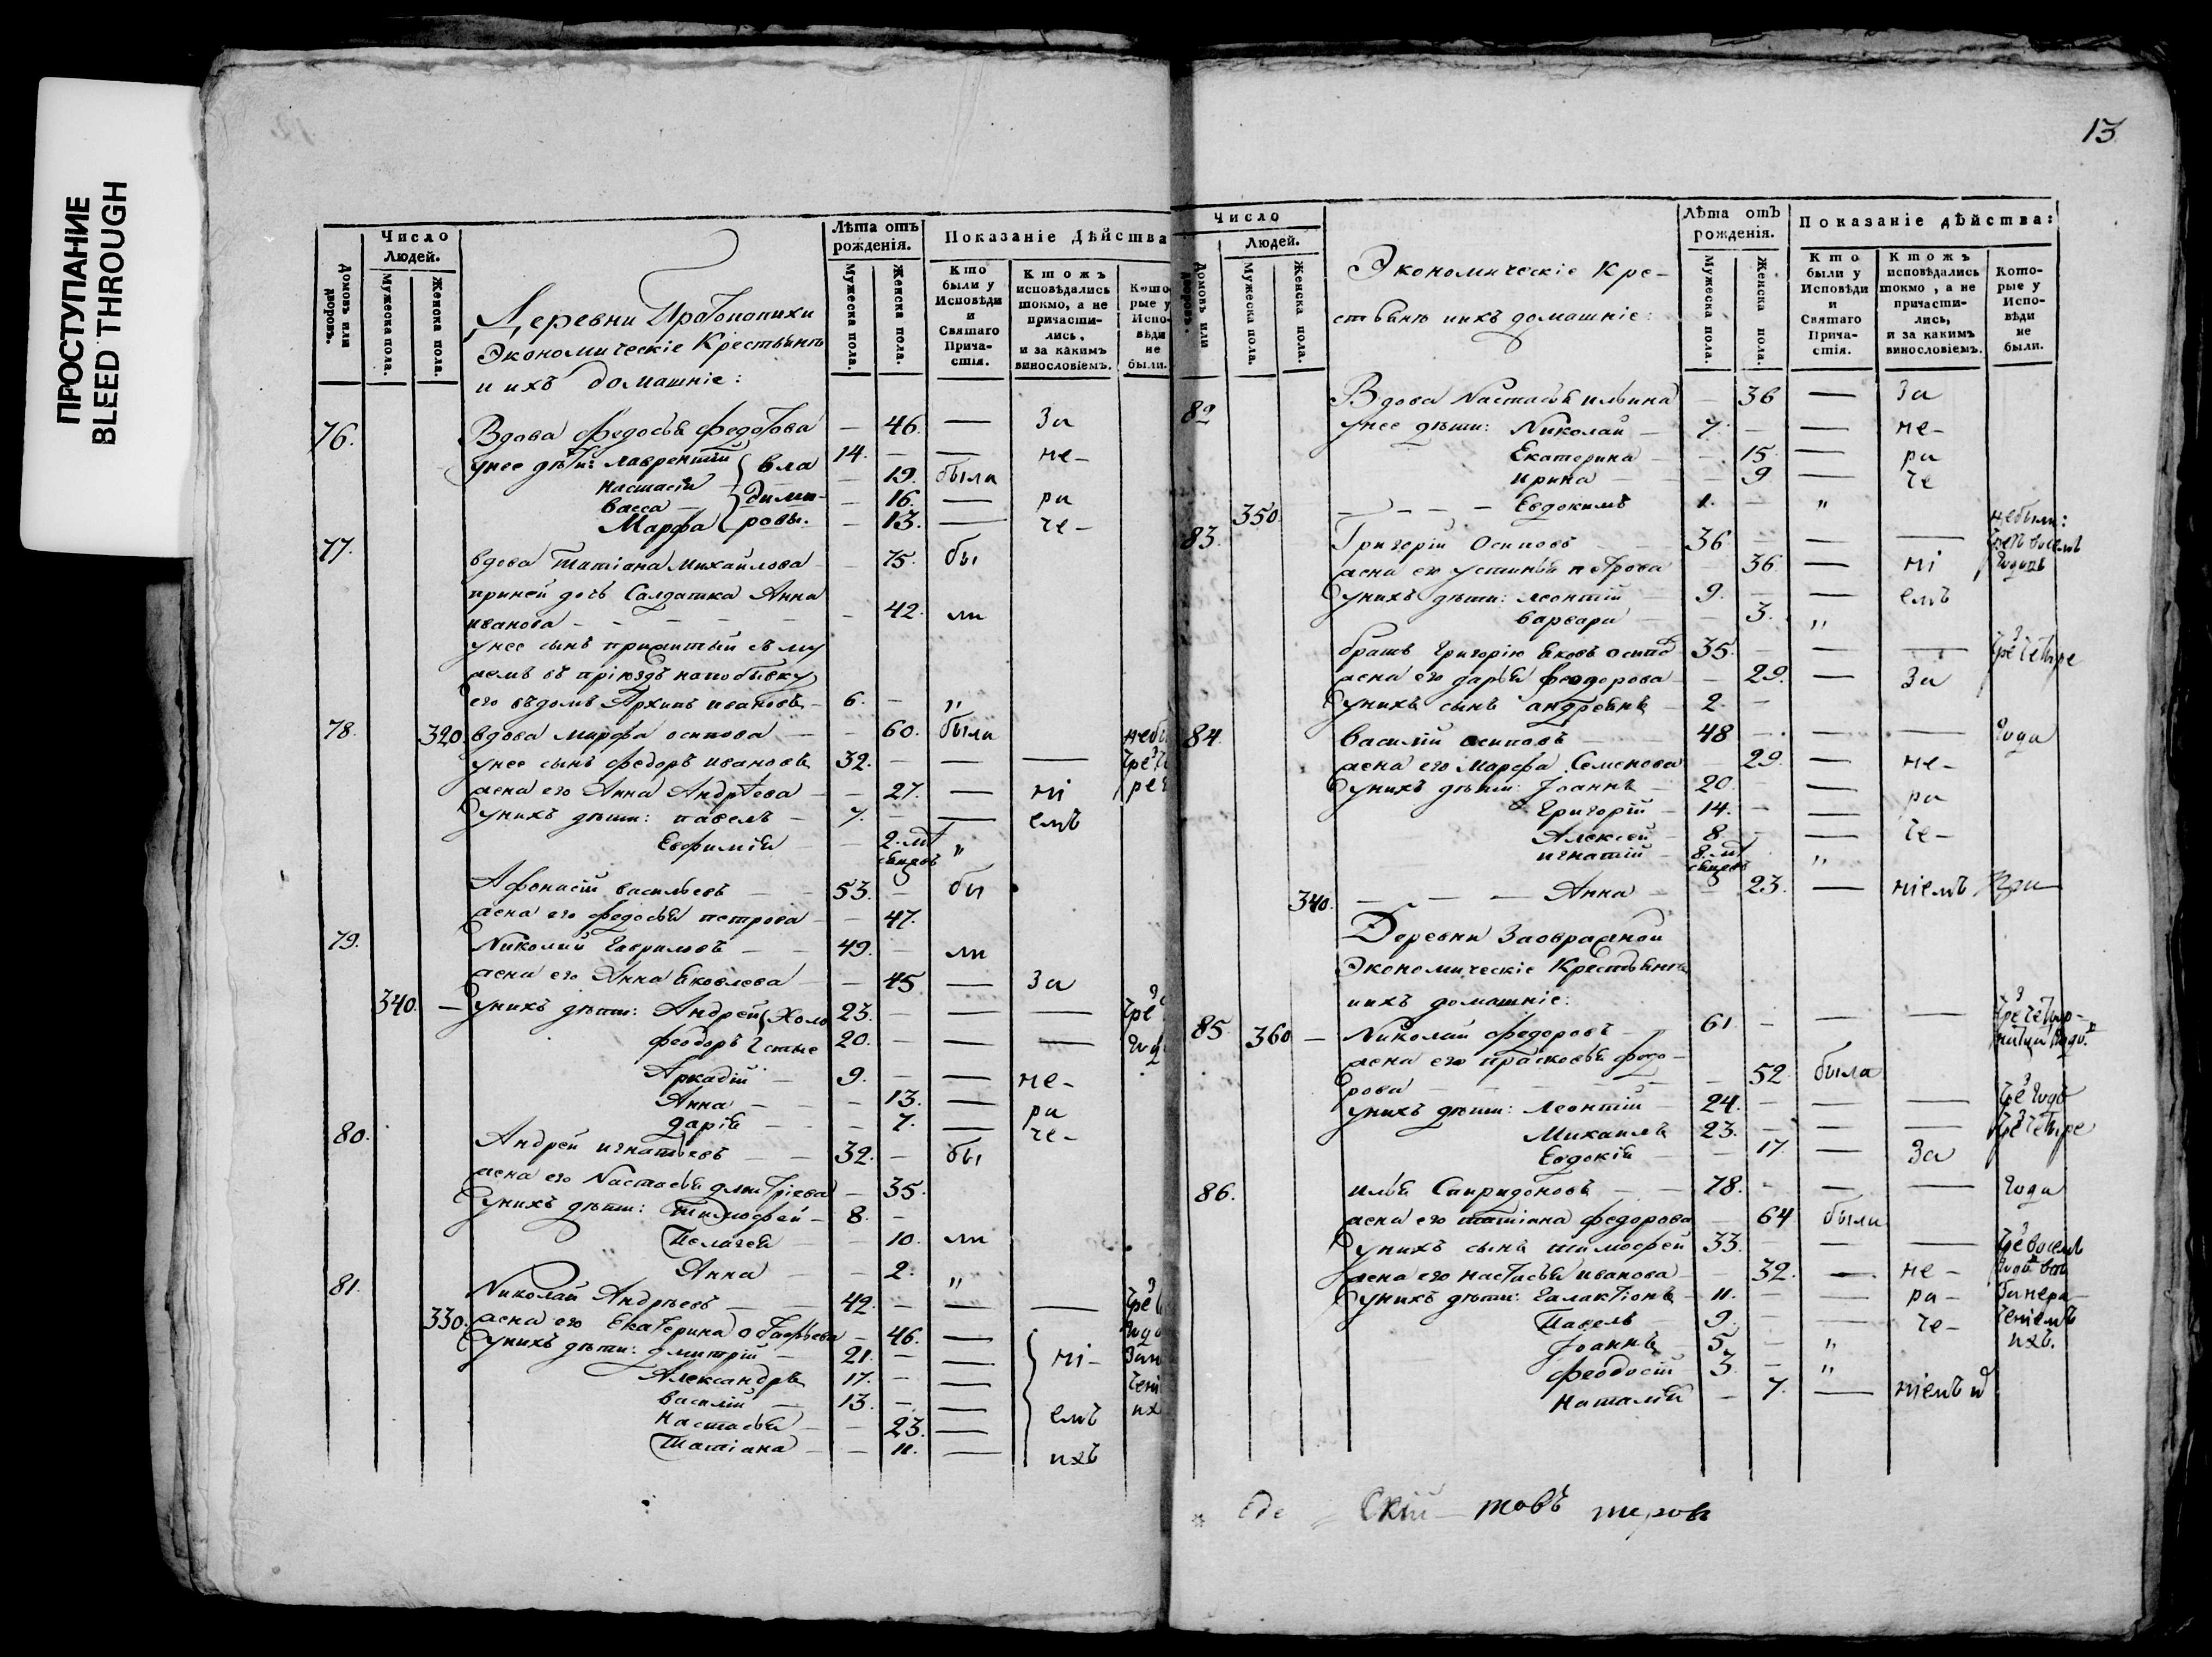 ПРОСТУПАНИЕ
BLEED THROUGH
Число
Людей.
Домовъ или дворовъ.
Мужеска пола.
Женска пола.
Деревни Протопопихи
Экономическіе Крестьяне
и ихъ домашніе:
Лѣта отъ
рожденія.
Мужеска пола.
Женска пола.
Показаніе Дѣйства
Кто
были у
Исповѣди
и
Святаго
Прича-
стія.
Ктожъ
исповѣдались
токмо, а не
причасти-
лись,
и за какимъ
винословіемъ.
Кото
рые у
Испо-
вѣди
не
были.
76. Вдова Федосья Федотова — 46. — За
у нее дѣти: Лаврентій 14. — — не-
Настасія — 19. была
Васса — 16. — ра
Марфа — 13. — че-
Влади
миро
77. вдова Татіана Михаилова — 75. бы
при ней дочь Салдатка Анна
иванова — 42. ли
у нее сынъ прижитый съ му
жемъ въ пріездъ на побывку
его въ домъ Архипъ ивановъ — 6. — "
78. 320. вдова марфа осипова — 60. была
у нее сынъ Федоръ ивановъ 32. — — —
жена его Анна Андрѣева — 27. — ні
у нихъ дѣти: павелъ — 7. — — емъ
Евфимія — 2. "
Афонасій васильевъ — 53. — бы
жена его Федосья петрова — 47.
79. Николай Гавриловъ — 49. — ли
жена его Анна Яковлева — 45 — За
340. — у нихъ дѣти: Андрей Холо 23. — — —
феодоръ стые 20. — — —
Аркадій — 9. — — не-
Анна — 13. — ра
дарія — 7. — че-
80. Андрей игнатьевъ — 32. — бы
жена его Настасья дмитріева — 35.
у нихъ дѣти: Тимофей — 8. —
Пелагея — 10. ли
Анна — 2. "
81. Николай Андрѣевъ — 42. — — —
330. жена его Екатерина — 46. —
у нихъ дѣти: дмитрій — 21. — — ні-
Александръ 17. — —
василій — 13. — — емъ
Настасья — 23. —
Татіана — 11. — ихъ
13
Число
Людей.
Домовъ или дворовъ.
Мужеска пола.
Женска пола.
Экономическіе Кре-
стьяне и ихъ домашніе:
Лѣта отъ
рожденія.
Мужеска пола.
Женска пола.
Показаніе дѣйства:
Кто
были у
Исповѣди
и
Святаго
Прича-
стія.
Ктожъ
исповѣдались
токмо, а не
причасти-
лись,
и за какимъ
винословіемъ.
Кото-
рые у
Испо-
вѣди
не
были.
82 Вдова Настасья ильина — 36 — За
у нее дѣти: Николай — 7. — — не-
Екатерина — 15 — ра
ирина — 9 — че
350 — Евдокимъ 1. — "
небыли:
83. Григорій Осиповъ — 36 — — —
жена его устинья петрова 36 — ні
у нихъ дѣти: леонтій 9. — — емъ
варвара — 3. "
братъ Григорію Яковъ осипо 35. — — —
жена его дарья феодорова — 29. — За
у нихъ сынъ андреянъ — 2. —
84. василій осиповъ — 48 — — — года
жена его марфа Семенова 29. — не-
у нихъ дѣти: Іоаннъ — 20. — ра
Григорій — 14. — —
Алексей — 8. — — че-
игнатій — 8. "
340. — Анна — 23. — ніемъ
Деревни Заовражной
Экономическіе Крестьяне
и ихъ домашніе:
85 360 — Николай федоровъ — 61. — — —
жена его прасковья федо-
рова — 52 была
у нихъ дѣти: Леонтій — 24. — — —
Михаилъ 23. — — —
Евдокія — 17. — За
86. илья Спиридоновъ — 78. — — — года
жена его татіана федорова — 64 была
у нихъ сынъ тимофей 33. — — —
жена его настасья иванова — 32. — не-
у нихъ дѣти: Галактіонъ — 11. — — ра-
Павелъ — 9. — — че-
Іоаннъ — 5. — "
феодосій 3. — "
наталія — 7. — ніемъ
ихъ.
скій товъ